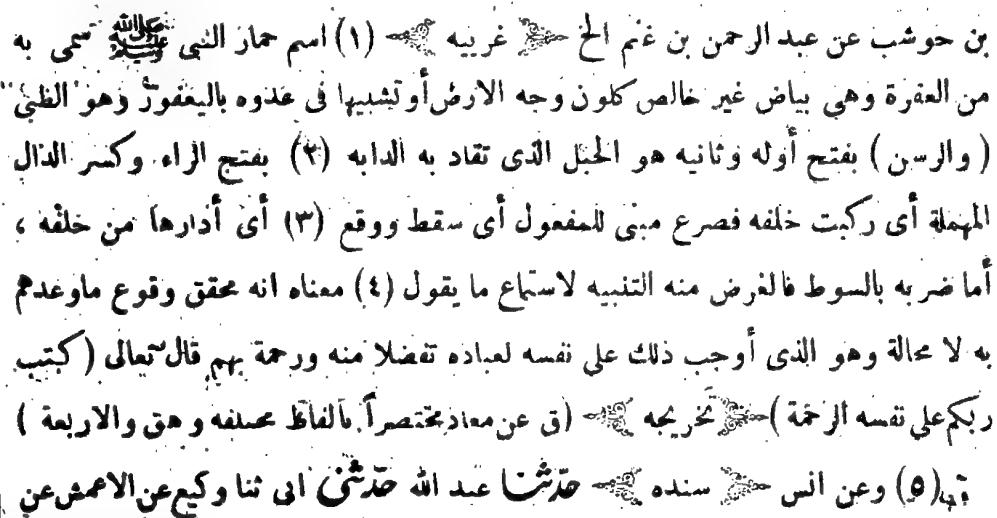 بن حوشب عن عبد الرحمن بن غنم الخ غريبه (١) اسم حمار النبى ﷺ سمى به
من العفرة وهى بياض غير خالص كلون وجه الارض أو تشبيها فى عدوه باليعفور وهو الظبى
( والرسن ) بفتح أوله وثانيه هو الحبل الذى تقاد به الدابه (٢) بفتح الراء وكسر الدال
المهملة أى ركبت خلفه فصرع مبنى للمفعول أى سقط ووقع (٣) أى أدارها من خلفه ،
أما ضربه بالسوط فالغرض منه التنبيه لاستماع ما يقول (٤) معناه انه محقق وقوع ماوعدهم
به لا محالة وهو الذى أوجب ذلك على نفسه لعباده تفضلا منه ورحمة بهم قال تعالى ( كتب
ربكم على نفسه الرحمة ) تخريجه (ق عن معاد مختصراً بألفاظ مختلفه وهق والاربعة )
(٥) وعن انس سنده حدّثنا عبد الله حدّثنى ابى ثنا وكيع عن الاعمش عن